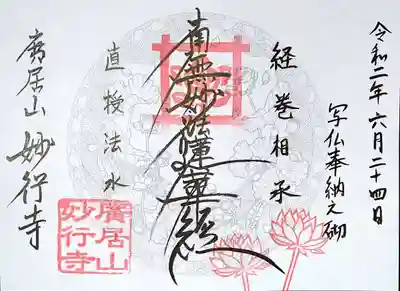 令和二年六月二十四日
写仏奉納之砌
経巻相承
南無妙法蓮華経
直授法水
廣居山
妙行寺
廣居山
妙行寺